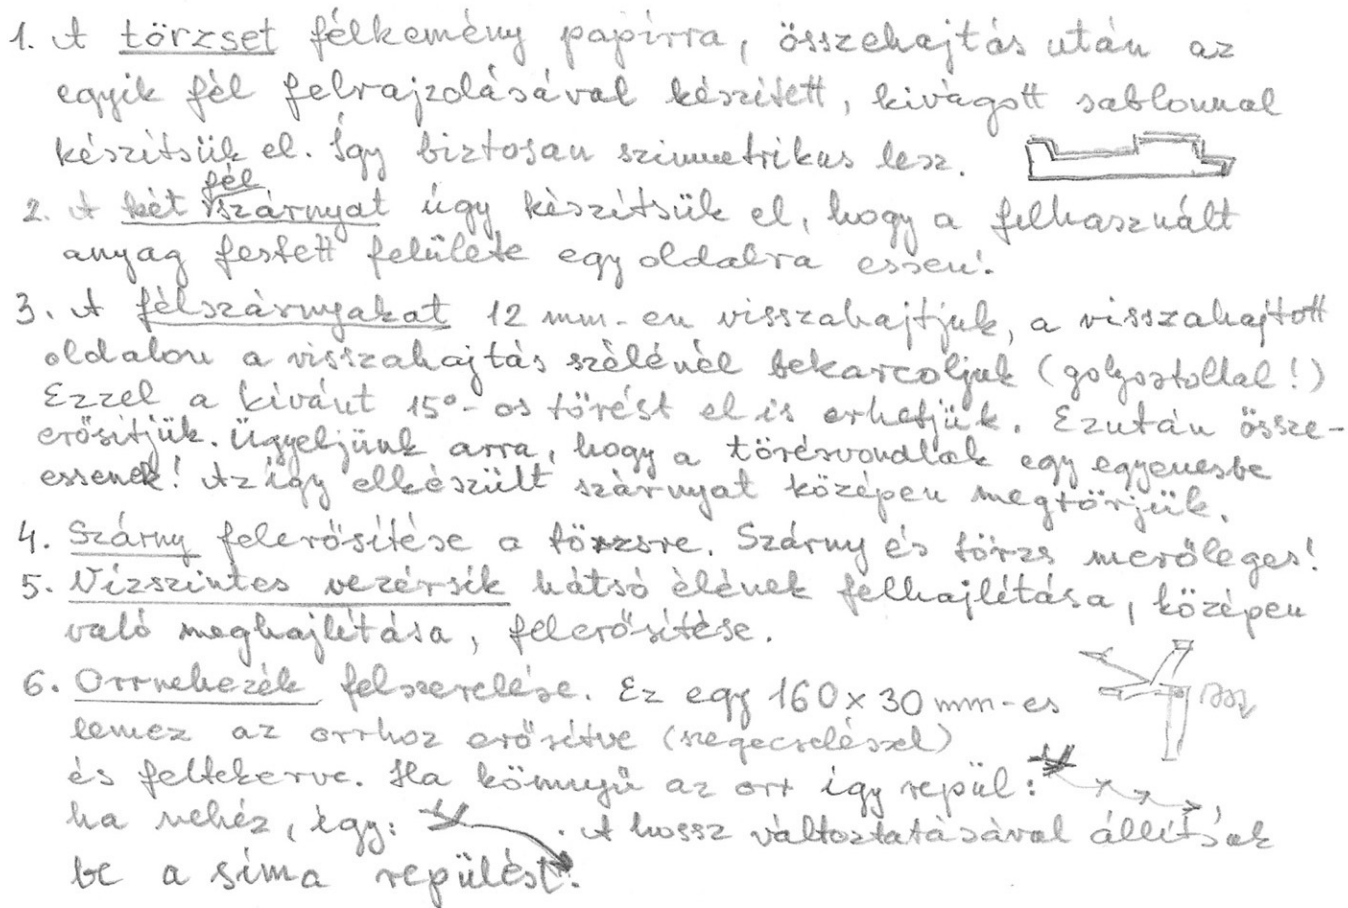 1. A törzset félkemény papírra, összehajtás után az
egyik fél felrajzolásával készített, kivágott sablonnal
készítsük el. Így biztosan szimmetrikus lesz.
fél
2. A két szárnyat úgy készítsük el, hogy a felhasznált
anyag festett felülete egy oldalra essen!
3. A félszárnyakat 12 mm-en visszahajtjuk, a visszahajtott
oldalon a visszahajtás szélénél bekarcoljuk (golyostollal!)
Ezzel a kívánt 15°-os törést el is érhetjük. Ezután össze-
erősítjük. Ügyeljünk arra, hogy a törésvonalak egy egyenesbe
essenek! Az így elkészült szárnyat középen megtörjük.
4. Szárny felerősítése a törzsre. Szárny és törzs merőleges!
5. Vízszintes vezérsík hátsó élének felhajlítása, középen
való meghajlítása, felerősítése.
6. Orrnehezék felszerelése. Ez egy 160 x 30 mm-es
lemez az orrhoz erősítve (szegecseléssel)
és feltekerve. Ha könnyű az orr így repül: ,
ha nehéz, így: . A hossz változtatásával állítsuk
be a sima repülést.